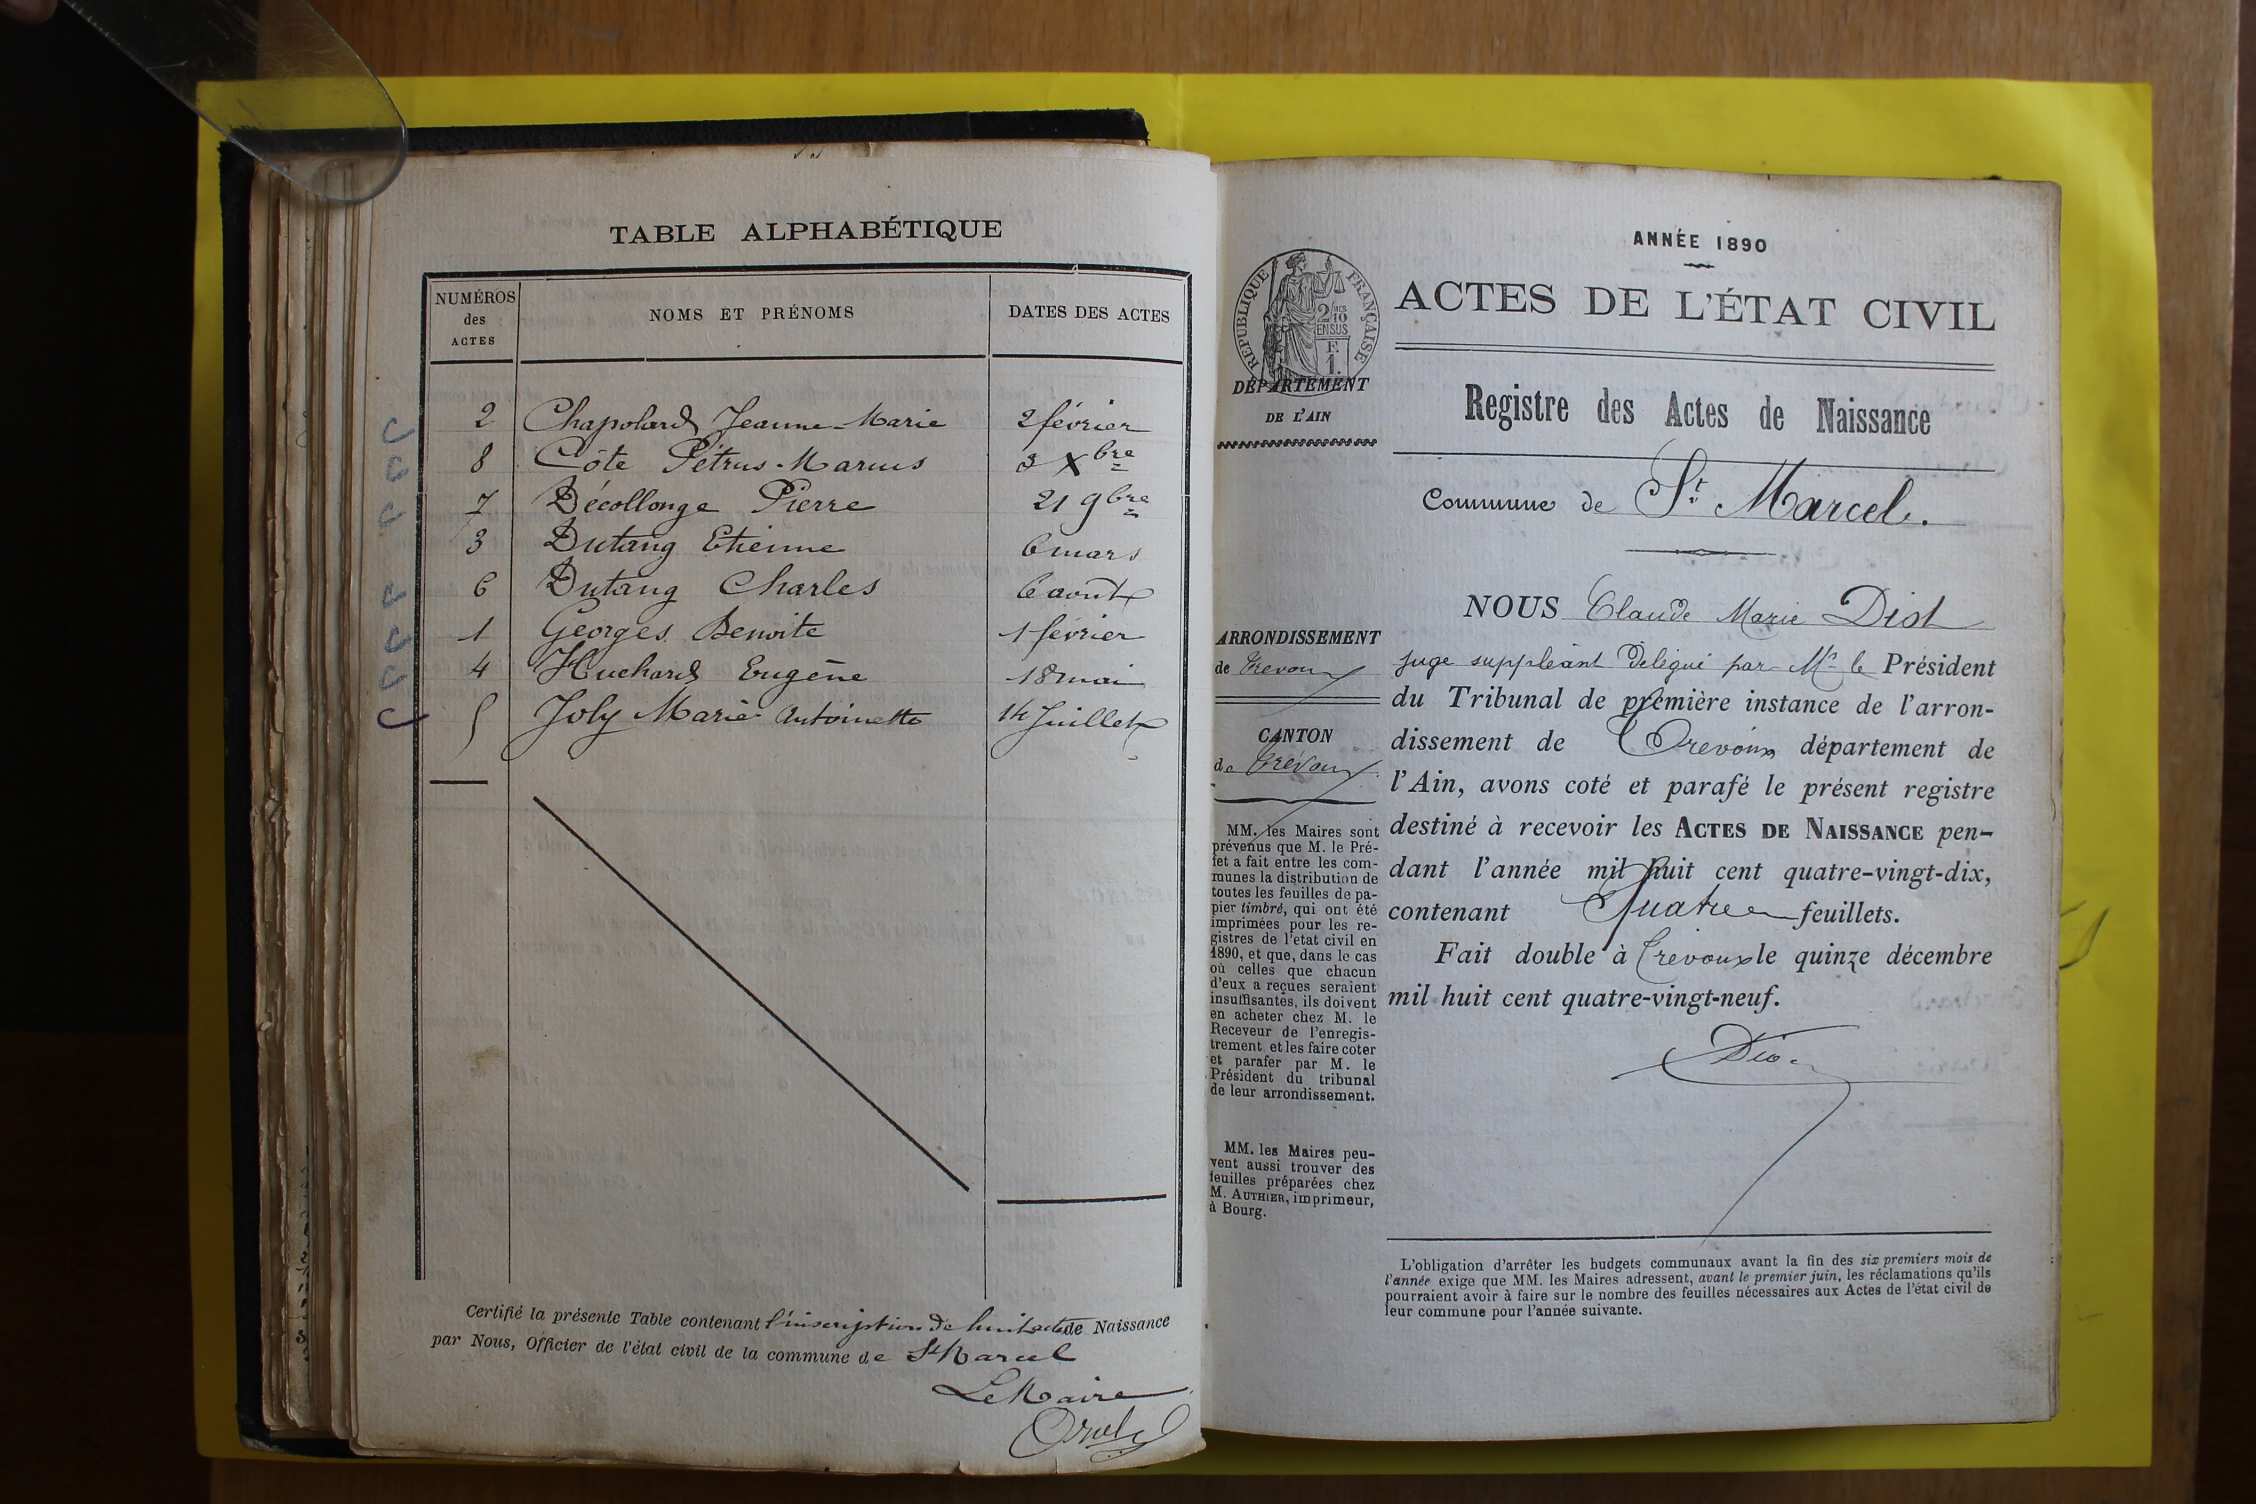 TABLE ALPHABÉTIQUE
NUMÉROS des ACTES | NOMS ET PRÉNOMS | DATES DES ACTES
2 Chapolard Jeanne-Marie 2 février
8 Côte Pétrus-Marius 3 Xbre
7 Décollonge Pierre 21 9bre
3 Dutang Etienne 6 mars
6 Dutang Charles 6 août
1 Georges Benoite 1 février
4 Huchard Eugène 18 mai
5 Joly Marie Antoinette 14 Juillet
Certifié la présente Table contenant l'inscription de huit actes de Naissance
par Nous, Officier de l'état civil de la commune de St Marcel
Le Maire
ANNÉE 1890
ACTES DE L'ÉTAT CIVIL
Registre des Actes de Naissance
Commune de St Marcel.
NOUS Claude Marie Diot
juge suppléant délégué par Mr le Président
du Tribunal de première instance de l'arron-
dissement de Trévoux département de
l'Ain, avons coté et parafé le présent registre
destiné à recevoir les ACTES DE NAISSANCE pen-
dant l'année mil huit cent quatre-vingt-dix,
contenant Quatre feuillets.
Fait double à Trévoux le quinze décembre
mil huit cent quatre-vingt-neuf.
Diot
L'obligation d'arrêter les budgets communaux avant la fin des six premiers mois de
l'année exige que MM. les Maires adressent, avant le premier juin, les réclamations qu'ils
pourraient avoir à faire sur le nombre des feuilles nécessaires aux Actes de l'état civil de
leur commune pour l'année suivante.
RÉPUBLIQUE FRANÇAISE
2/10
EN SUS
F.
1.
DÉPARTEMENT
DE L'AIN
ARRONDISSEMENT
de Trevoux
CANTON
de Trévoux
MM. les Maires sont
prévenus que M. le Pré-
fet a fait entre les com-
munes la distribution de
toutes les feuilles de pa-
pier timbré, qui ont été
imprimées pour les re-
gistres de l'etat civil en
1890, et que, dans le cas
où celles que chacun
d'eux a reçues seraient
insuffisantes, ils doivent
en acheter chez M. le
Receveur de l'enregis-
trement et les faire coter
et parafer par M. le
Président du tribunal
de leur arrondissement.
MM. les Maires peu-
vent aussi trouver des
feuilles préparées chez
M. AUTHIER, imprimeur,
à Bourg.